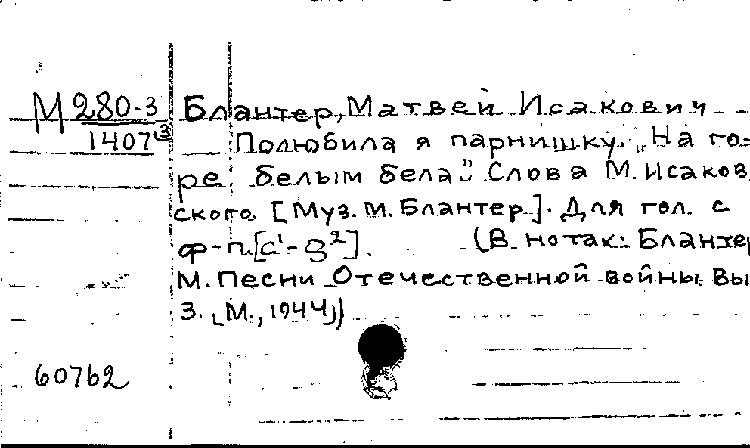 М 280-3 Блантер, Матвей Исакович
1407 3 Полюбила я парнишку. "На го-
ре белым бела". Слова М. Исаков
ского. [Муз. М. Блантер]. Для гол. с
ф-п. [c¹-g²]. (В нотах: Блантер
М. Песни Отечественной войны. Вы
3. [М., 1944])
60762